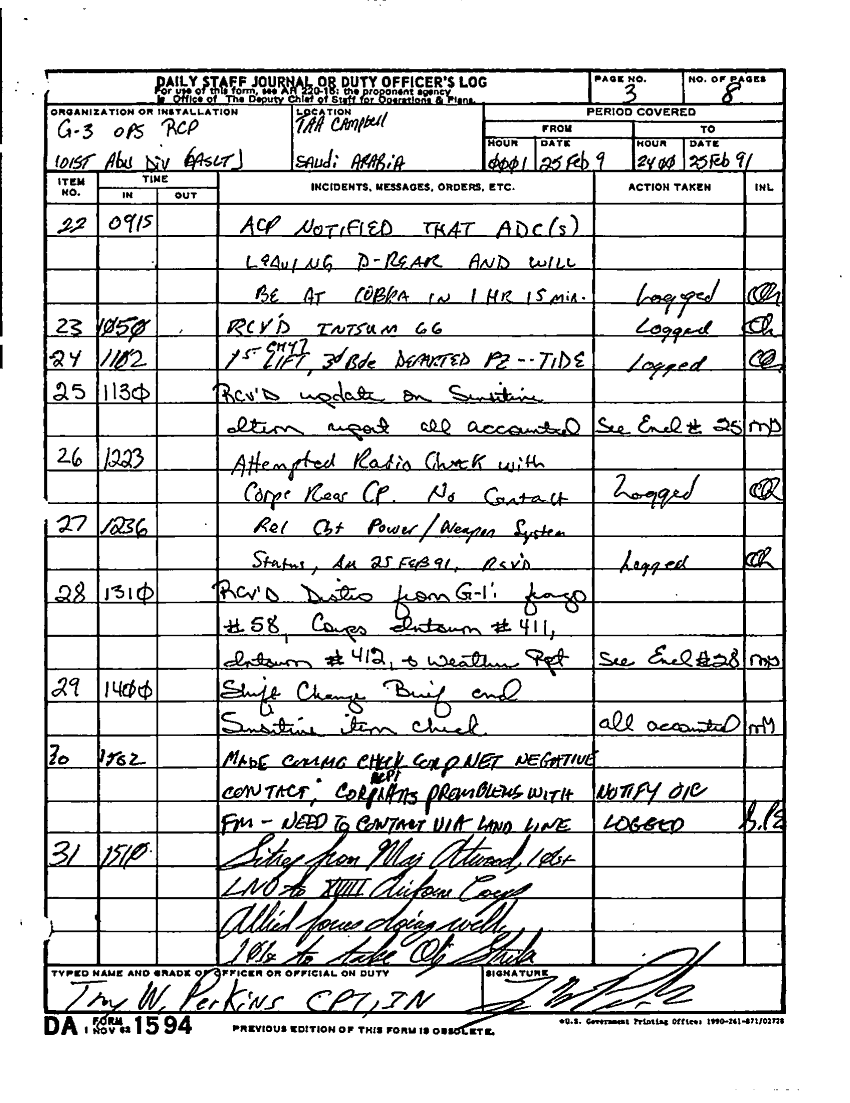 DAILY STAFF JOURNAL OR DUTY OFFICER'S LOG
For use of this form, see AR 220-15; the proponent agency
is Office of The Deputy Chief of Staff for Operations & Plans.
PAGE NO. 3
NO. OF PAGES 8
ORGANIZATION OR INSTALLATION
G-3 OPS RCP
101ST Abn Div (AASLT)
LOCATION
TAA Campbell
SAUDI ARABIA
PERIOD COVERED
FROM TO
HOUR DATE HOUR DATE
0001 25 Feb 9 2400 25 Feb 91
ITEM NO. TIME IN OUT INCIDENTS, MESSAGES, ORDERS, ETC. ACTION TAKEN INL
22 0915 ACP NOTIFIED THAT ADC(S)
LEAVING D-REAR AND WILL
BE AT COBRA IN 1 HR 15 min. Logged
23 1050 RCV'D INTSUM 66 Logged
24 1102 1ST CH47 LIFT, 3d Bde DEPARTED PZ -- TIDE Logged
25 1130 Rcv'D update on Sensitive
Item report all accounted See Encl # 25
26 1223 Attempted Radio Check with
Corps Rear CP. No Contact Logged
27 1236 Rel Cbt Power/Weapon System
Status, 25 FEB 91, RCV'D Logged
28 1310 Rcv'D Distro from G-1: frago
# 58, Corps Intsum # 411,
Intsum # 412, & Weather Rpt See Encl #28
29 1400 Shift Change Brief and
Sensitive item check all accounted
30 1502 MADE COMMO CHECK CORP NET NEGATIVE
CONTACT; CORP HAS PROMBLEMS WITH NOTIFY OIC
FM - NEED TO CONTACT VIA LAND LINE LOGGED
31 1510 Sitrep from Maj Atwood, 101st
LNO to XVIII Airborne Corps
Allied forces doing well,
101st to take Obj
TYPED NAME AND GRADE OF OFFICER OR OFFICIAL ON DUTY
Troy W. Perkins CPT, IN
SIGNATURE
DA FORM 1 NOV 62 1594
PREVIOUS EDITION OF THIS FORM IS OBSOLETE.
*U.S. Government Printing Office: 1990-261-871/02728